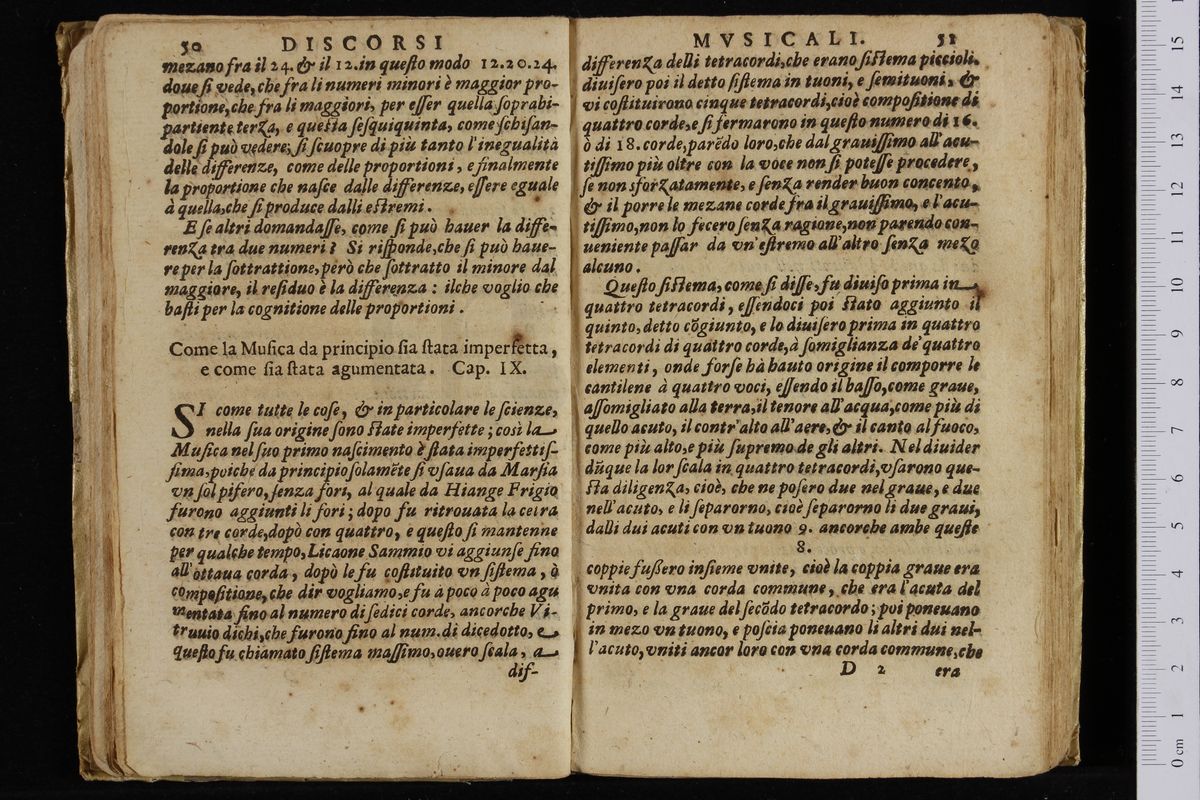 50 DISCORSI
mezano fra il 24. & il 12. in queſto modo 12.20.24.
doue ſi vede, che fra li numeri minori è maggior pro-
portione, che fra li maggiori, per eſſer quella ſoprabi-
partiente terza, e queſta ſeſquiquinta, come ſchiſan-
dole ſi può vedere; ſi ſcuopre di più tanto l'inegualità
delle differenze, come delle proportioni, e finalmente
la proportione che naſce dalle differenze, eſſere eguale
à quella, che ſi produce dalli eſtremi.
E ſe altri domandaſſe, come ſi può hauer la diffe-
renza tra due numeri? Si riſponde, che ſi può haue-
re per la ſottrattione, però che ſottratto il minore dal
maggiore, il reſiduo è la differenza: ilche voglio che
baſti per la cognitione delle proportioni.
Come la Muſica da principio ſia ſtata imperfetta,
e come ſia ſtata agumentata. Cap. IX.
SI come tutte le coſe, & in particolare le ſcienze,
nella ſua origine ſono ſtate imperfette; così la
Muſica nel ſuo primo naſcimento è ſtata imperfettiſ-
ſima, poiche da principio ſolamẽte ſi vſaua da Marſia
vn ſol pifero, ſenza fori, al quale da Hiange Frigio
furono aggiunti li fori; dopo fu ritrouata la cetra
con tre corde, dopò con quattro, e queſto ſi mantenne
per qualche tempo, Licaone Sammio vi aggiunſe fino
all'ottaua corda, dopò le fu coſtituito vn ſiſtema, ò
compoſitione, che dir vogliamo, e fu à poco à poco agu
mentata fino al numero di ſedici corde, ancorche Vi-
truuio dichi, che furono fino al num. di dicedotto, e
queſto fu chiamato ſiſtema maſſimo, ouero ſcala, a
dif-
MVSICALI. 51
differenza delli tetracordi, che erano ſiſtema piccioli.
diuiſero poi il detto ſiſtema in tuoni, e ſemituoni, &
vi coſtituirono cinque tetracordi, cioè compoſitione di
quattro corde, e ſi fermarono in queſto numero di 16.
ò di 18. corde, parẽdo loro, che dal grauiſſimo all'acu-
tiſſimo più oltre con la voce non ſi poteſſe procedere,
ſe non sforzatamente, e ſenza render buon concento,
& il porre le mezane corde fra il grauiſſimo, e l'acu-
tiſſimo, non lo fecero ſenza ragione, non parendo con-
ueniente paſſar da vn'eſtremo all'altro ſenza mezo
alcuno.
Queſto ſiſtema, come ſi diſſe, fu diuiſo prima in
quattro tetracordi, eſſendoci poi ſtato aggiunto il
quinto, detto cõgiunto, e lo diuiſero prima in quattro
tetracordi di quattro corde, à ſomiglianza de' quattro
elementi, onde forſe hà hauto origine il comporre le
cantilene à quattro voci, eſſendo il baſſo, come graue,
aſſomigliato alla terra, il tenore all'acqua, come più di
quello acuto, il contr'alto all'aere, & il canto al fuoco,
come più alto, e più ſupremo de gli altri. Nel diuider
dũque la lor ſcala in quattro tetracordi, vſarono que-
ſta diligenza, cioè, che ne poſero due nel graue, e due
nell'acuto, e li ſepararono, cioè ſeparorno li due graui,
dalli dui acuti con vn tuono 9. ancorche ambe queſte
8.
coppie fuſſero inſieme vnite, cioè la coppia graue era
vnita con vna corda commune, che era l'acuta del
primo, e la graue del ſecõdo tetracordo; poi poneuano
in mezo vn tuono, e poſcia poneuano li altri dui nel-
l'acuto, vniti ancor loro con vna corda commune, che
D 2 era
15
14
13
12
11
10
9
8
7
6
5
4
3
2
1
0 cm